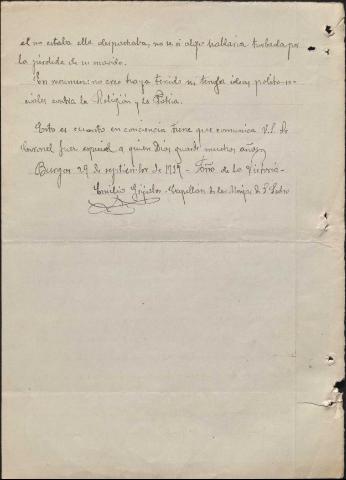 él no estaba ella despachaba, no se si algo hallaria turbada por
la pérdida de su marido.
En resumen: no creo haya tenido ni tenga ideas politico-so-
ciales contra la Religión y la Patria.
Esto es cuanto en conciencia tiene que comunicar V.S. Sr
Coronel Juez especial a quien Dios guarde muchos años,
Burgos 29 de septiembre de 1939 - Año de la Victoria -
Emilio - Capellan de las Monjas de S. Pedro